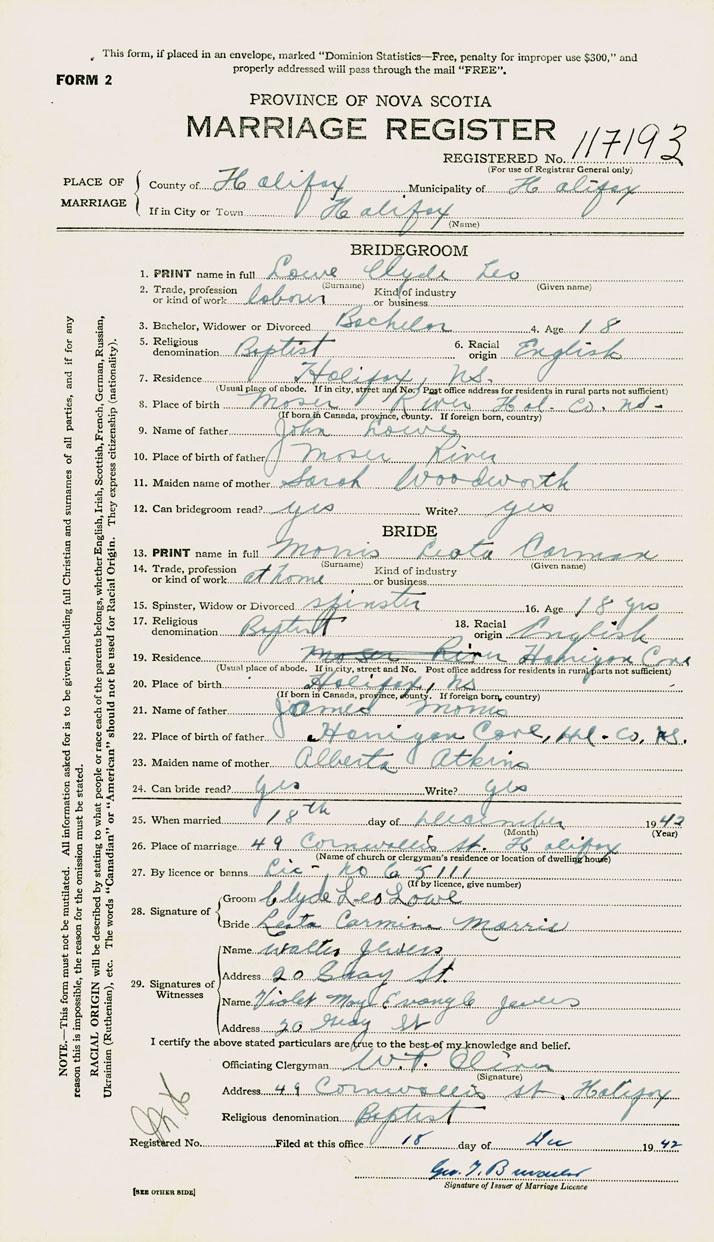 This form, if placed in an envelope, marked "Dominion Statistics—Free, penalty for improper use $300," and
properly addressed will pass through the mail "FREE".
FORM 2
PROVINCE OF NOVA SCOTIA
MARRIAGE REGISTER
REGISTERED No. 117193
(For use of Registrar General only)
PLACE OF MARRIAGE
County of Halifax Municipality of Halifax
If in City or Town Halifax
(Name)
BRIDEGROOM
1. PRINT name in full Lowe Clyde Leo
(Surname) (Given name)
2. Trade, profession or kind of work labourer Kind of industry or business
3. Bachelor, Widower or Divorced Bachelor 4. Age 18
5. Religious denomination Baptist 6. Racial origin English
7. Residence Halifax, NS.
(Usual place of abode. If in city, street and No. Post office address for residents in rural parts not sufficient)
8. Place of birth Moser River Hal. Co. NS-
(If born in Canada, province, county. If foreign born, country)
9. Name of father John Lowe
10. Place of birth of father Moser River
11. Maiden name of mother Sarah Woodworth
12. Can bridegroom read? yes Write? yes
BRIDE
13. PRINT name in full Morris Leota Carman
(Surname) (Given name)
14. Trade, profession or kind of work at home Kind of industry or business
15. Spinster, Widow or Divorced spinster 16. Age 18 yrs
17. Religious denomination Baptist 18. Racial origin English
19. Residence Moser River Harrigan Cove
(Usual place of abode. If in city, street and No. Post office address for residents in rural parts not sufficient)
20. Place of birth Halifax, NS
(If born in Canada, province, county. If foreign born, country)
21. Name of father James Morris
22. Place of birth of father Harrigan Cove, Hal. Co. NS.
23. Maiden name of mother Alberta Atkins
24. Can bride read? yes Write? yes
25. When married 18th day of December 1942
(Month) (Year)
26. Place of marriage 49 Cornwallis St. Halifax
(Name of church or clergyman's residence or location of dwelling house)
27. By licence or banns Lic- No 65111
(If by licence, give number)
28. Signature of
Groom Clyde Leo Lowe
Bride Leota Carmin Morris
29. Signatures of Witnesses
Name Walter Jewers
Address 20 Gray St.
Name Violet May Evangle Jewers
Address 20 Gray St
I certify the above stated particulars are true to the best of my knowledge and belief.
Officiating Clergyman W.P. Oliver
(Signature)
Address 49 Cornwallis St. Halifax
Religious denomination Baptist
Registered No. Filed at this office 18 day of Dec 1942
Geo. T.
Signature of Issuer of Marriage Licence
[SEE OTHER SIDE]
NOTE.—This form must not be mutilated. All information asked for is to be given, including full Christian and surnames of all parties, and if for any
reason this is impossible, the reason for the omission must be stated.
RACIAL ORIGIN will be described by stating to what people or race each of the parents belongs, whether English, Irish, Scottish, French, German, Russian,
Ukrainian (Ruthenian), etc. The words "Canadian" or "American" should not be used for Racial Origin. They express citizenship (nationality).